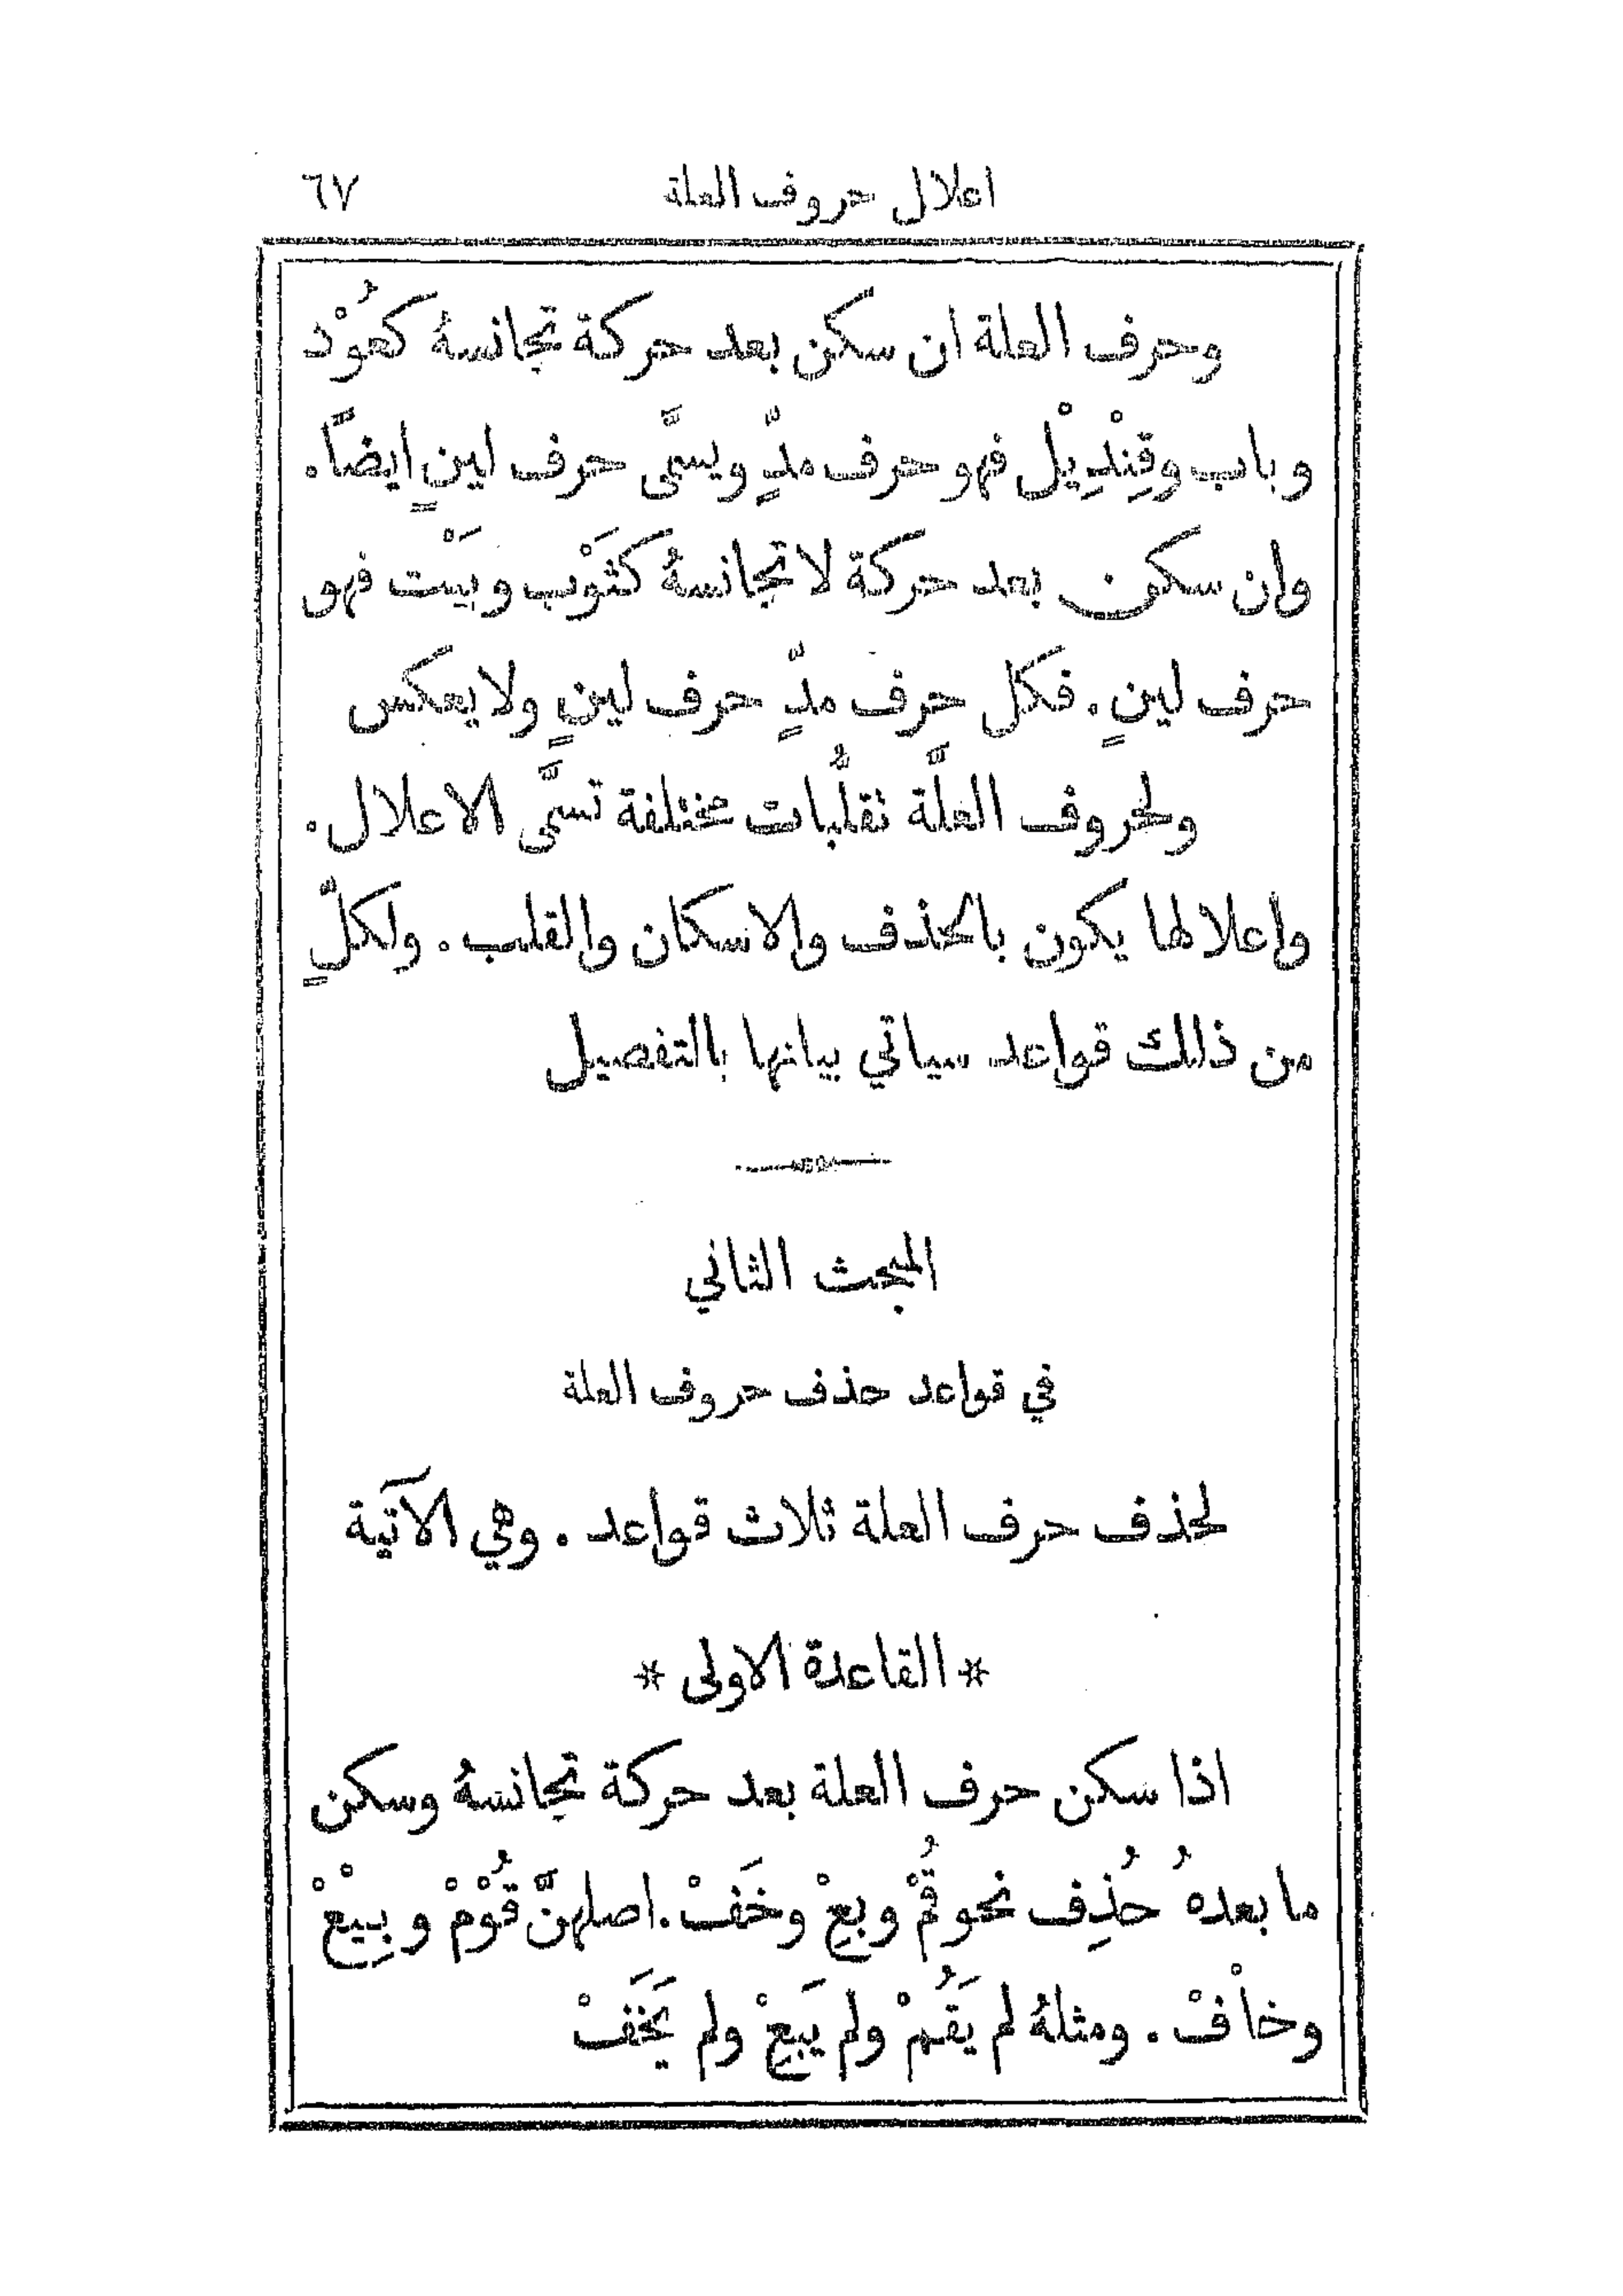 اعلال حروف العلة ٦٧
وحرف العلة ان سكن بعد حركة تجانسهُ كعُوْد
وباب وقِنْدِيْل فهو حرف مدٍّ ويسمَّى حرف لينٍ ايضاً.
وان سكن بعد حركة لا تجانسهُ كثَوْب وبَيْت فهو
حرف لينٍ. فكل حرف مدٍّ حرف لينٍ ولا يعكس
ولحروف العلَّة تقلُّبات مختلفة تسمَّى الاعلال.
وإعلالها يكون بالحذف والاسكان والقلب. ولكلٍّ
من ذلك قواعد سياتي بيانها بالتفصيل
المبحث الثاني
في قواعد حذف حروف العلة
لحذف حرف العلة ثلاث قواعد. وهي الآتية
* القاعدة الاولى *
اذا سكن حرف العلة بعد حركة تجانسهُ وسكن
ما بعدهُ حُذِف نحو قُمْ وبِعْ وخَفْ. اصلهنَّ قُوْمْ وبِيْعْ
وخاْفْ. ومثلهُ لم يَقُمْ ولم يَبِعْ ولم يَخَفْ